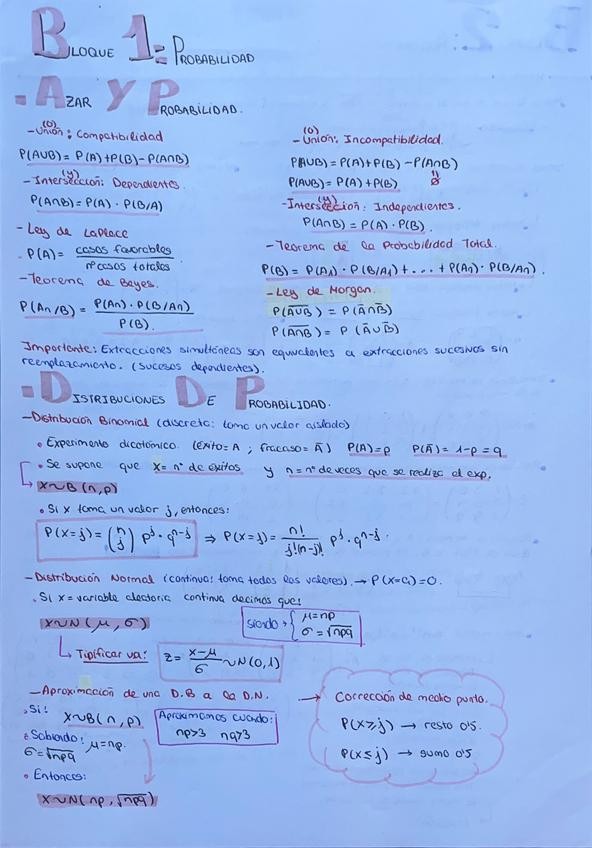 BLOQUE 1: PROBABILIDAD
- AZAR Y PROBABILIDAD.
(o)
- Unión: Compatibilidad
P(A∪B) = P(A) + P(B) - P(A∩B)
(y)
- Intersección: Dependientes.
P(A∩B) = P(A) · P(B/A)
- Ley de Laplace
P(A) = casos favorables / nº casos totales
- Teorema de Bayes.
P(An/B) = P(An) · P(B/An) / P(B).
(o)
- Unión: Incompatibilidad.
P(A∪B) = P(A) + P(B) - P(A∩B)
P(A∪B) = P(A) + P(B)
"
∅
(y)
- Intersección: Independientes.
P(A∩B) = P(A) · P(B).
- Teorema de la Probabilidad Total.
P(B) = P(A1) · P(B/A1) + ... + P(An) · P(B/An).
- Ley de Morgan.
P(A̅∪̅B̅) = P(A̅∩B̅)
P(A̅∩̅B̅) = P(A̅∪B̅)
Importante: Extracciones simultáneas son equivalentes a extracciones sucesivas sin
reemplazamiento. (sucesos dependientes).
- DISTRIBUCIONES DE PROBABILIDAD.
- Distribución Binomial (discreta: toma un valor aislado)
• Experimento dicotómico (éxito = A ; fracaso = A̅) P(A) = p P(A̅) = 1-p = q
• Se supone que x = nº de éxitos y n = nº de veces que se realiza el exp.
X~B(n,p)
• Si x toma un valor j, entonces:
P(x=j) = (n j) p^j · q^n-j ⇒ P(x=j) = n! / j!(n-j)! p^j · q^n-j
- Distribución Normal (continua: toma todos los valores). → P(x=a) = 0.
• Si x = variable aleatoria continua decimos que:
X~N(μ,σ)
siendo → { μ = np
σ = √npq
↳ Tipificar va: z = x-μ / σ ~N(0,1)
- Aproximación de una D.B a la D.N.
• Si:
X~B(n,p)
• Sabiendo:
μ = np.
σ = √npq
• Entonces:
X~N(np, √npq)
Aproximamos cuando:
np>3 nq>3
→ Corrección de medio punto.
P(x≥j) → resto 0'5.
P(x≤j) → sumo 0'5